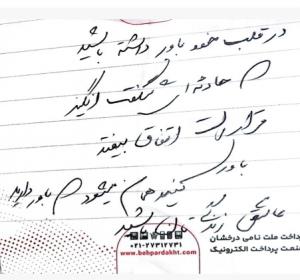 در قلب خود باور داشته باشید
حادثه ای شگفت انگیز
قرار است اتفاق بیفتد
باور کنید همان میشود که باور دارید
عاشق زندگی باشید
پرداخت ملت نامی درخشان
صنعت پرداخت الکترونیک
۰۲۱-۲۷۳۱۲۷۳۱
www.behpardakht.com